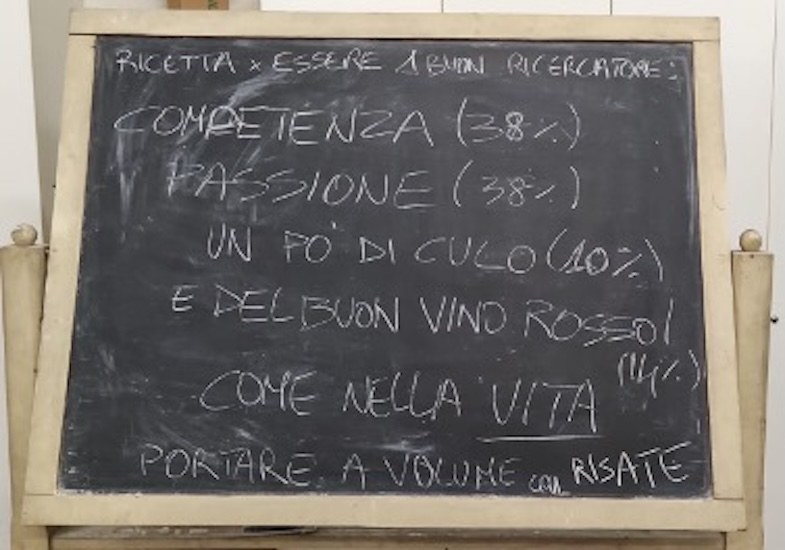 RICETTA x ESSERE 1 BUON RICERCATORE:
COMPETENZA (38%)
PASSIONE (38%)
UN PO' DI CULO (10%)
E DEL BUON VINO ROSSO!
(14%)
COME NELLA VITA
PORTARE A VOLUME con RISATE